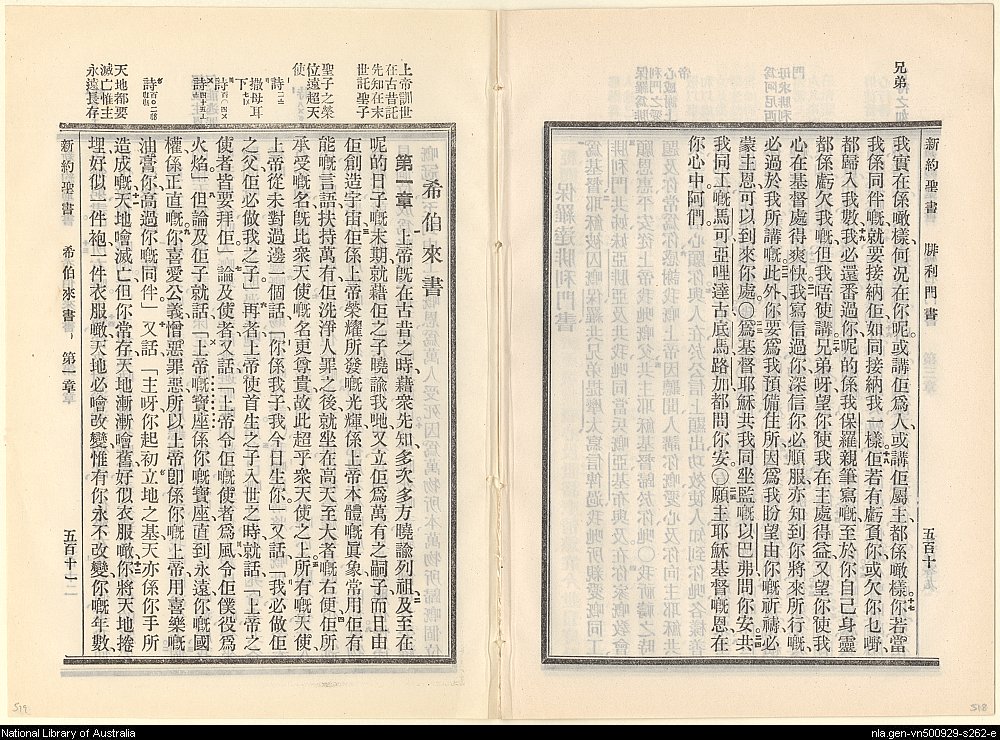 兄弟
新約聖書 腓利門書 五百十
我實在係噉樣何况在你呢。或講佢爲人、或講佢屬主、都係噉樣。十七你若當
我係同伴嘅就要接納佢如同接納我一樣。十八佢若有虧負你或欠你乜嘢、
都歸入我數。十九我必還番過你呢的係我保羅親筆寫嘅至於你自己身靈
都係虧欠我嘅、但我唔使講。二十兄弟呀望你使我在主處得益又望你使我
心在基督處得爽快。我寫信過你深信你必順服亦知到你將來所行嘅、
必過於我所講嘅。此外你要爲我預備住所因爲我盼望由你嘅祈禱必
蒙主恩可以到來你處。○二三爲基督耶穌共我同坐監嘅以巴弗問你安二四共
我同工嘅馬可亞哩達古底馬路加都問你安。○二五願主耶穌基督嘅恩在
你心中阿們。
上帝訓世
在古昔託
先知在末
世託聖子
聖子之榮
位遠超天
使
詩二
撒母耳
下七
詩百〇四
詩四十五
詩百〇二
天地都要
滅亡惟主
永遠長存
希伯來書
第一章 一上帝旣在古昔之時、藉衆先知、多次多方曉諭列祖、二及至在
呢的日子嘅末期就藉佢之子曉諭我哋又立佢爲萬有之嗣子而且由
佢創造宇宙三佢係上帝榮耀所發嘅光輝係上帝本體嘅眞象常用佢有
能嘅言語扶持萬有佢洗淨人罪之後就坐在高天至大者嘅右便四佢所
承受嘅名旣比衆天使嘅名更尊貴故此超乎衆天使之上五所有嘅天使、
上帝從未對過邊一個話、「你係我子我今日生你」又話、「我必做佢
之父佢必做我之子」六再者上帝使首生之子入世之時就話、「上帝之
使者皆要拜佢」七論及使者又話、「上帝令佢嘅使者爲風令佢僕役爲
火焰」八但論及佢子就話、「上帝嘅寶座係你嘅寶座直到永遠你嘅國
權係正直嘅九你喜愛公義憎惡罪惡所以上帝卽係你嘅上帝用喜樂嘅
油膏你、高過你嘅同伴」十又話、「主呀你起初立地之基天亦係你手所
造成嘅十一天地噲滅亡但你常存天地漸漸噲舊好似衣服噉十二你將天地捲
埋好似一件袍一件衣服噉天地必噲改變惟有你永不改變你嘅年數
新約聖書 希伯來書 第一章 五百十二
519
518
National Library of Australia
nla.gen-vn500929-s262-e